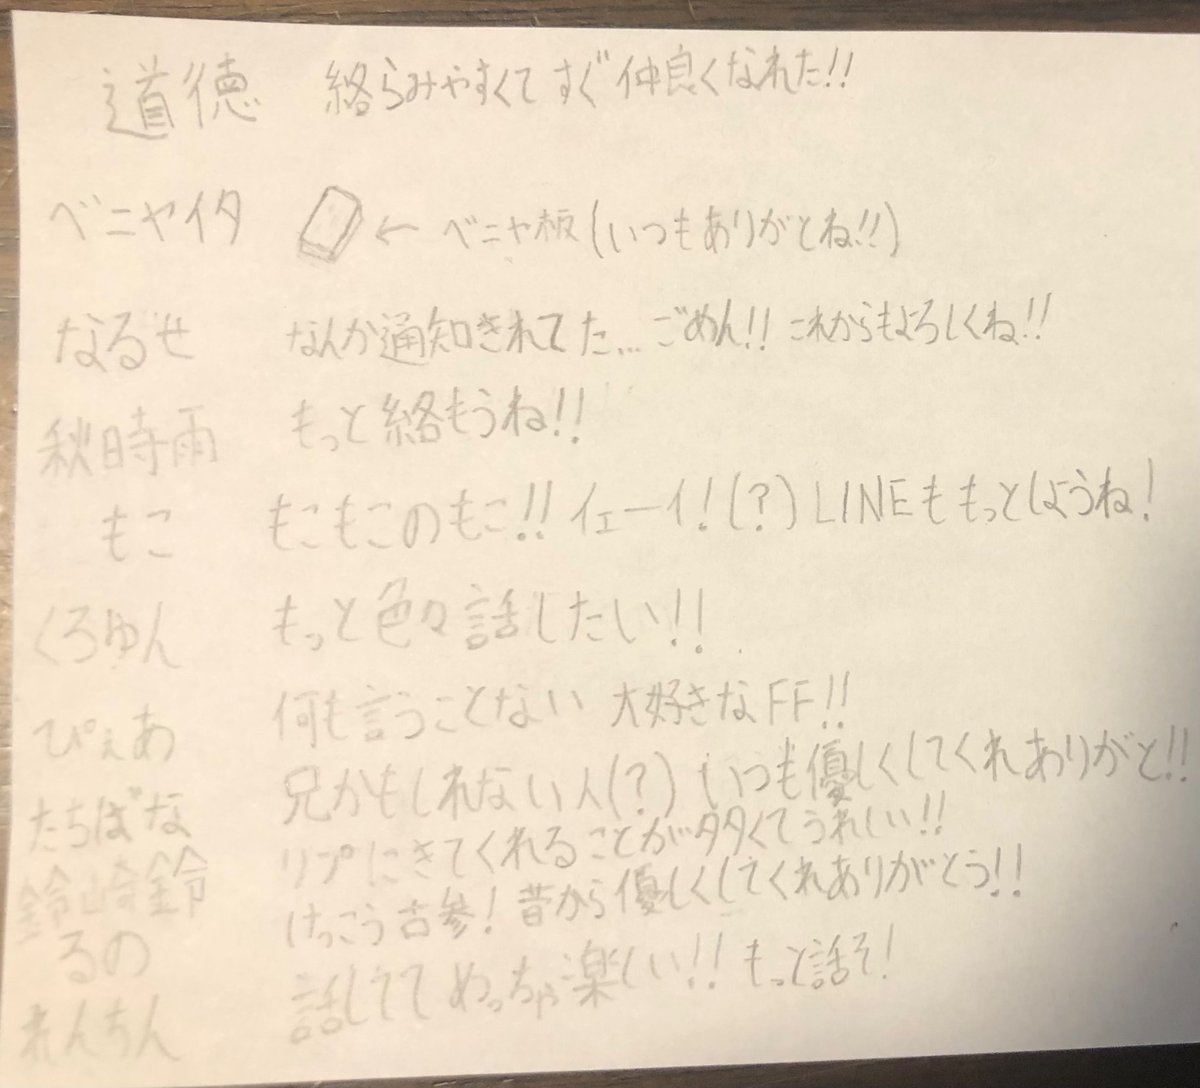 道徳 絡らみやすくてすぐ仲良くなれた!!
ベニヤイタ ← ベニヤ板(いつもありがとね!!)
なるせ なんか通知きれてた…ごめん!! これからもよろしくね!!
秋時雨 もっと絡もうね!!
もこ もこもこのもこ!! イェーイ!(?) LINEももっとしようね!
くろゆん もっと色々話したい!!
ぴぇあ 何も言うことない 大好きなFF!!
たちばな 兄かもしれない人(?) いつも優しくしてくれありがと!!
鈴崎鈴 リプにきてくれることが多くてうれしい!!
るの けっこう古参! 昔から優しくしてくれありがとう!!
れんちん 話しててめっちゃ楽しい!! もっと話そ!